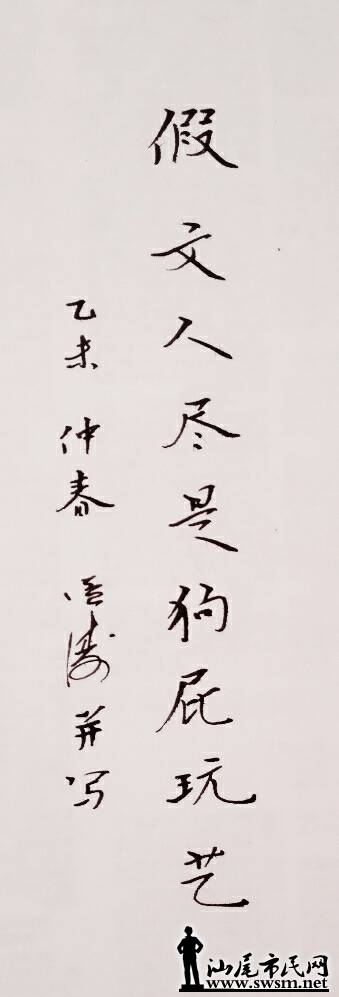 假文人尽是狗屁玩艺
乙未 仲春 并写
汕尾市民网
www.swsm.net